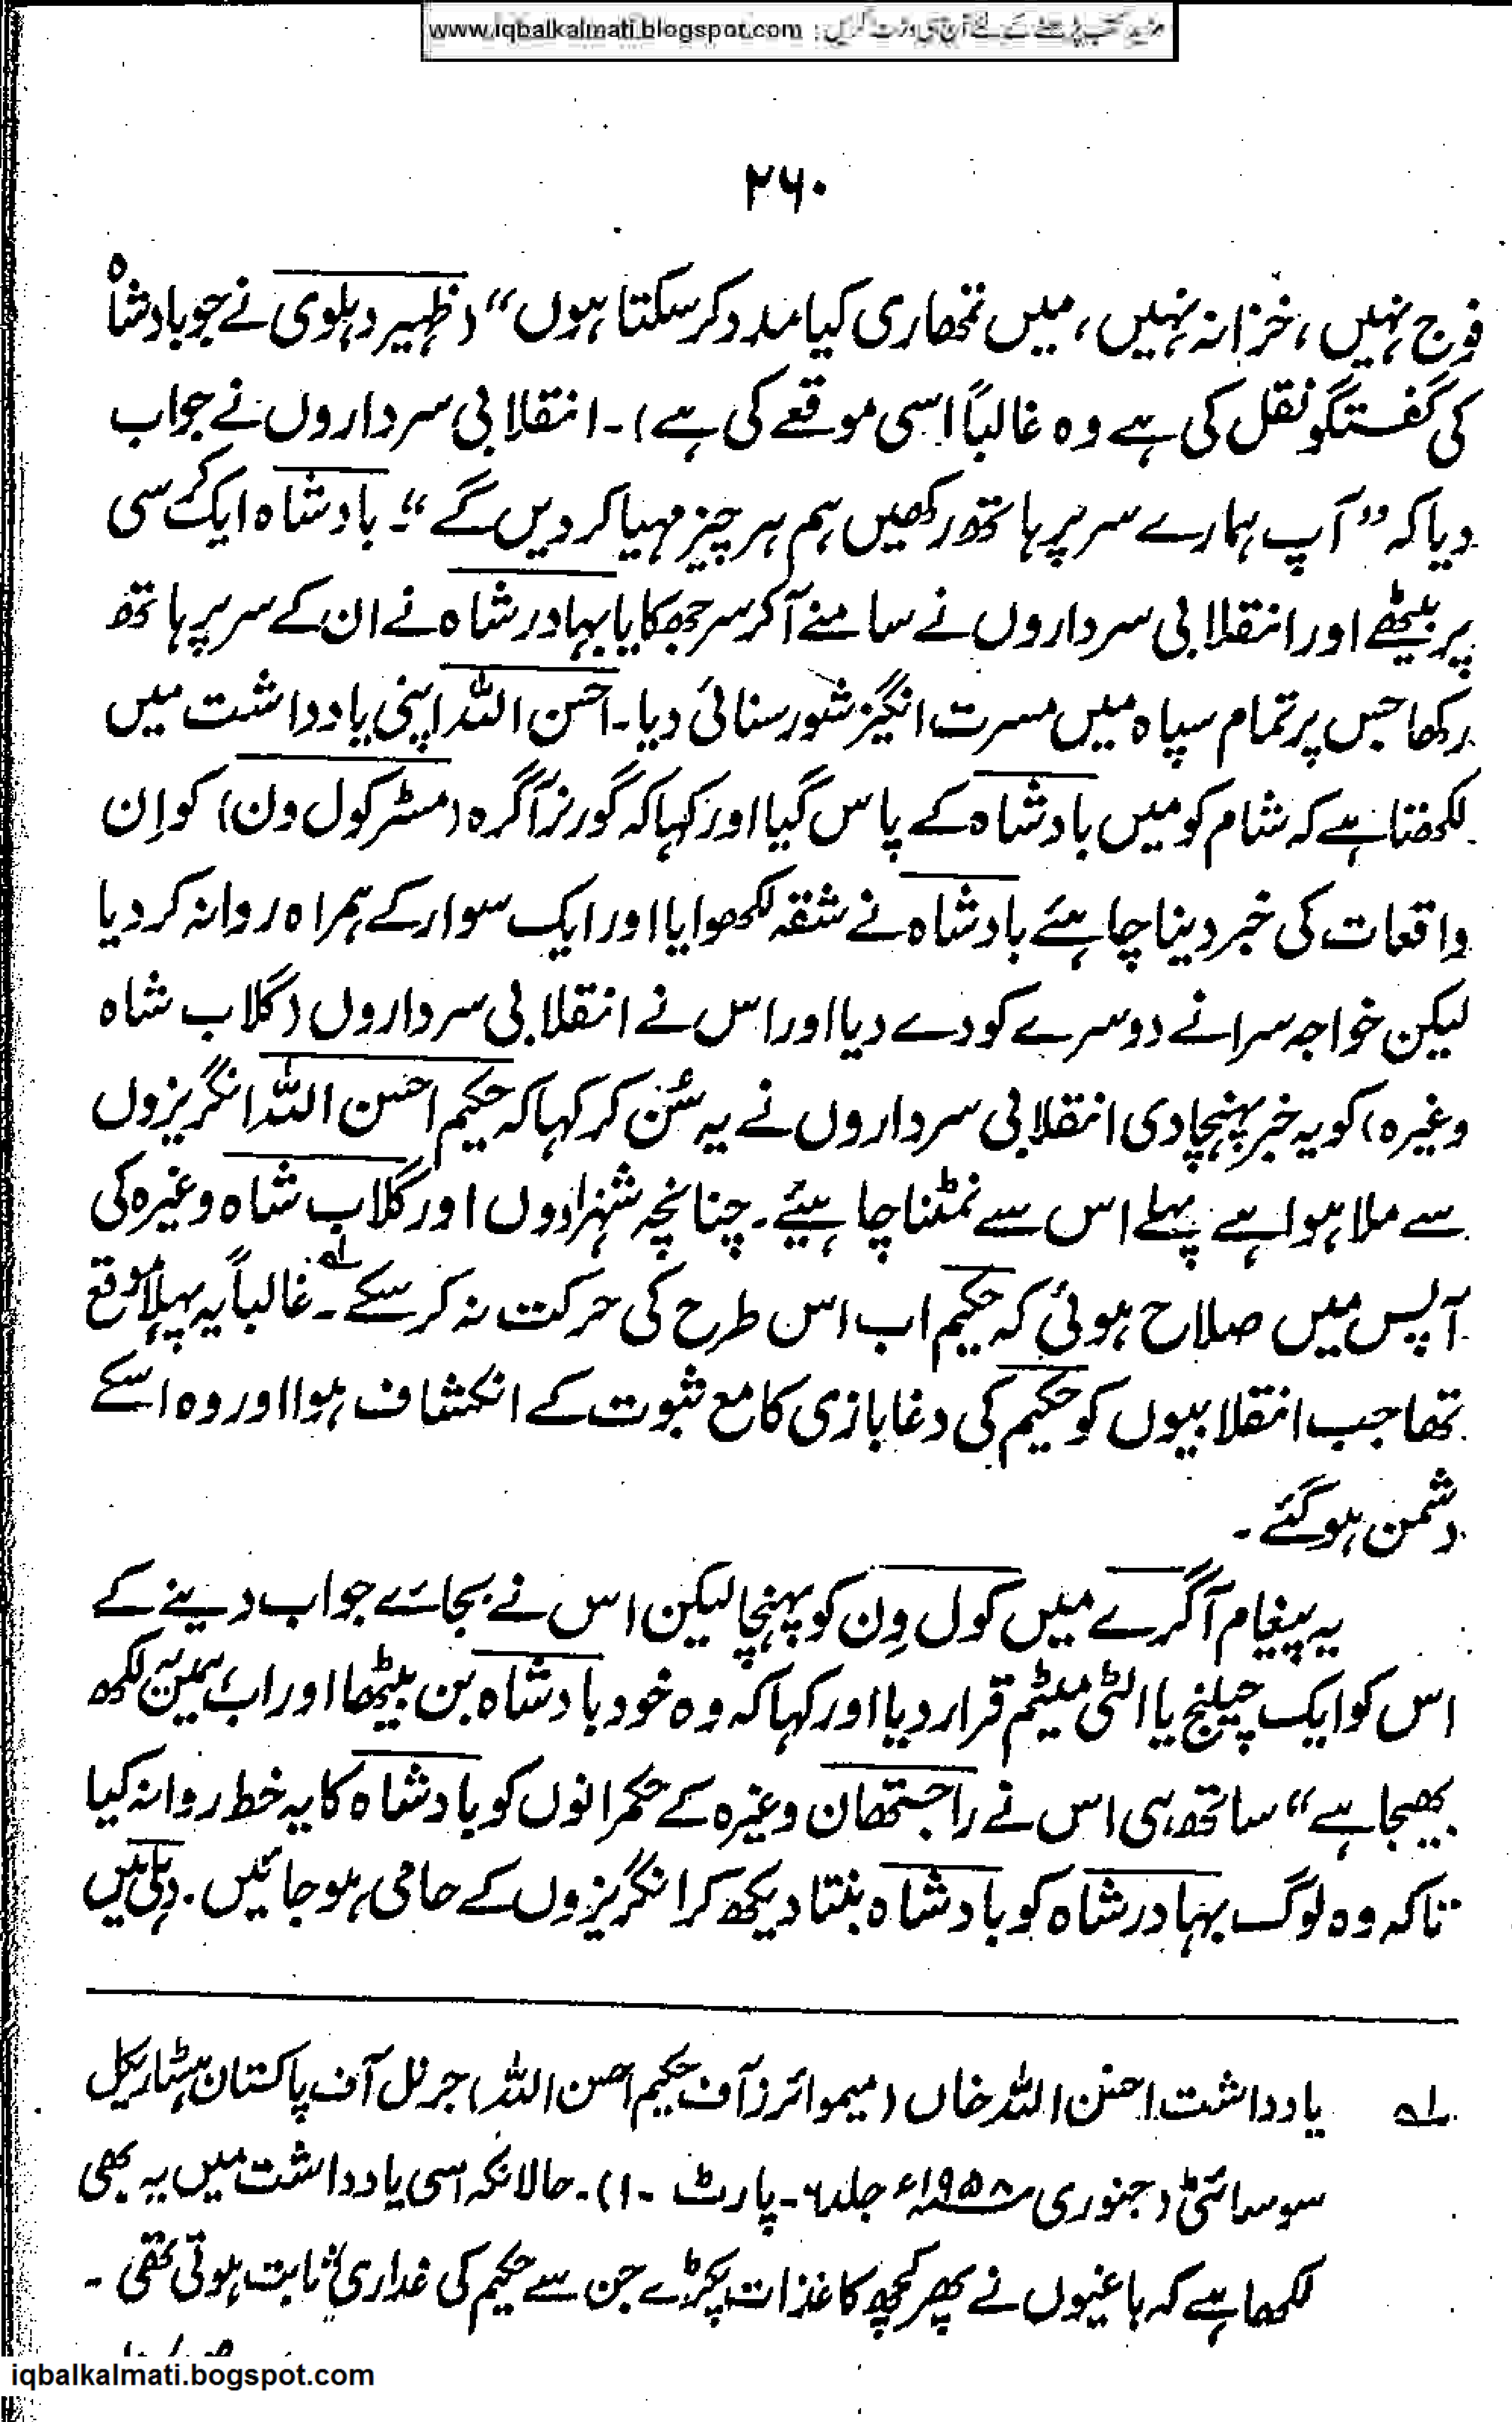 مزید کتب پڑھنے کے لئے آج ہی وزٹ کریں : www.iqbalkalmati.blogspot.com
۲۶۰
فوج نہیں، خزانہ نہیں، میں تمھاری کیا مدد کر سکتا ہوں“ (ظہیر دہلوی نے جو بادشاہ
کی گفتگو نقل کی ہے وہ غالباً اسی موقعے کی ہے)۔ انقلابی سرداروں نے جواب
دیا کہ ”آپ ہمارے سر پر ہاتھ رکھیں ہم ہر چیز مہیا کر دیں گے“۔ بادشاہ ایک کرسی
پر بیٹھے اور انقلابی سرداروں نے سامنے آکر سر جھکایا بہادر شاہ نے ان کے سر پر ہاتھ
رکھا جس پر تمام سپاہ میں مسرت انگیز شور سنائی دیا۔ احسن اللہ اپنی یادداشت میں
لکھتا ہے کہ شام کو میں بادشاہ کے پاس گیا اور کہا کہ گورنر آگرہ (مسٹر کول ون) کو اِن
واقعات کی خبر دینا چاہئے بادشاہ نے شقہ لکھوایا اور ایک سوار کے ہمراہ روانہ کر دیا
لیکن خواجہ سرا نے دوسرے کو دے دیا اور اس نے انقلابی سرداروں (گلاب شاہ
وغیرہ) کو یہ خبر پہنچا دی انقلابی سرداروں نے یہ سُن کر کہا کہ حکیم احسن اللہ انگریزوں
سے ملا ہوا ہے پہلے اس سے نمٹنا چاہیئے۔ چنانچہ شہزادوں اور گلاب شاہ وغیرہ کی
آپس میں صلاح ہوئی کہ حکیم اب اس طرح کی حرکت نہ کر سکے۔ لہ غالباً یہ پہلا موقع
تھا جب انقلابیوں کو حکیم کی دغابازی کا مع ثبوت کے انکشاف ہوا اور وہ اسکے
دشمن ہو گئے۔
یہ پیغام آگرے میں کول وِن کو پہنچا لیکن اس نے بجائے جواب دینے کے
اس کو ایک چیلنج یا الٹی میٹم قرار دیا اور کہا کہ وہ خود بادشاہ بن بیٹھا اور اب ہمیں یہ لکھ
بھیجا ہے“ ساتھ ہی اس نے راجستھان وغیرہ کے حکمرانوں کو بادشاہ کا یہ خط روانہ کیا
تاکہ وہ لوگ بہادر شاہ کو بادشاہ بنتا دیکھ کر انگریزوں کے حامی ہو جائیں۔ دہلی میں
لہ یادداشت احسن اللہ خاں (میموائرز آف حکیم احسن اللہ) جرنل آف پاکستان ہسٹاریکل
سوسائٹی (جنوری ۱۹۵۸ء جلد ۶۔ پارٹ ۔۱)۔ حالانکہ اسی یادداشت میں یہ بھی
لکھا ہے کہ باغیوں نے پھر کچھ کاغذات پکڑے جن سے حکیم کی غداری ثابت ہوتی تھی۔
iqbalkalmati.bogspot.com